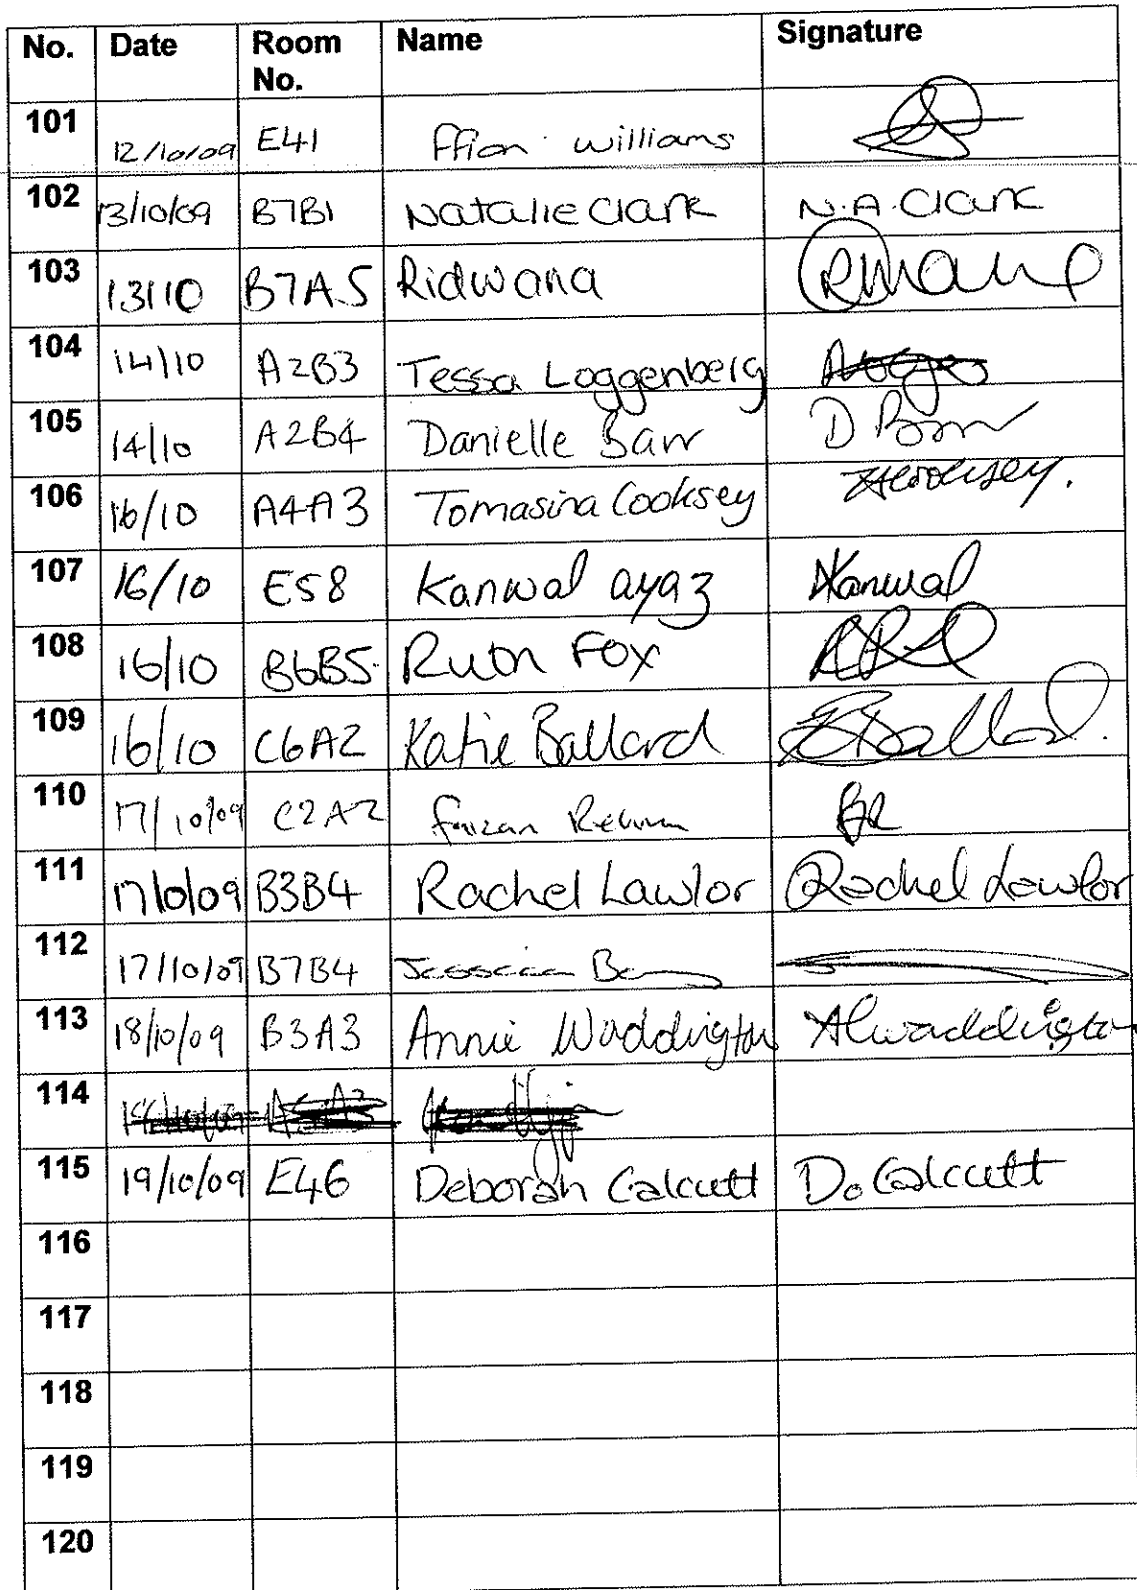 No. Date Room No. Name Signature
101 12/10/09 E41 Ffion Williams
102 13/10/09 B7B1 Natalie Clark N.A. Clark
103 13/10 B7A5 Ridwana
104 14/10 A2B3 Tessa Loggenberg
105 14/10 A2B4 Danielle Barr D Barr
106 16/10 A4A3 Tomasina Cooksey
107 16/10 E58 Kanwal ayaz Kanwal
108 16/10 B6B5 Ruth Fox
109 16/10 C6A2 Katie Ballard KBallard.
110 17/10/09 C2A2 Faizan
111 17/10/09 B3B4 Rachel Lawlor Rachel Lawlor
112 17/10/09 B7B4 Jessica
113 18/10/09 B3A3 Annie Waddington AWaddington
114
115 19/10/09 E46 Deborah Calcutt D. Calcutt
116
117
118
119
120